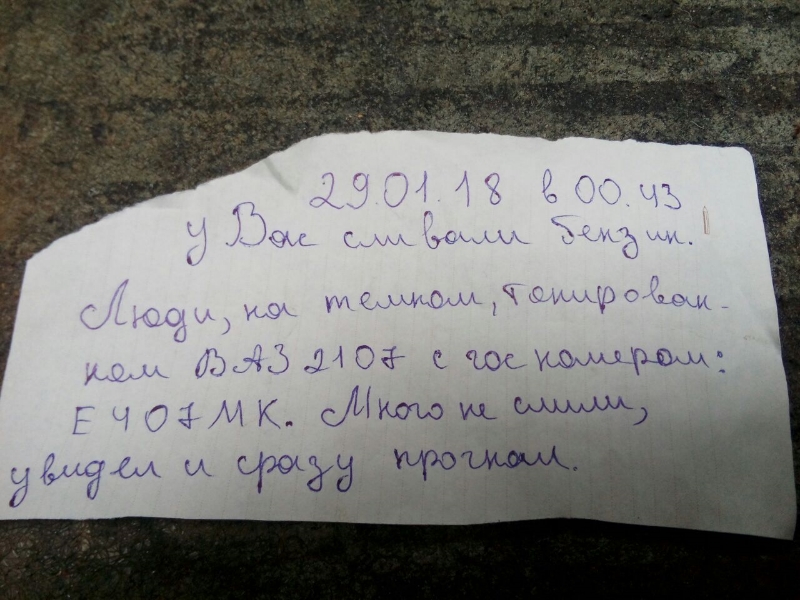 29.01.18 в 00.43
у Вас сливали бензин.
Люди, на темном, тонирован-
ном ВАЗ 2107 с гос номером:
Е407МК. Много не слили,
увидел и сразу прогнал.